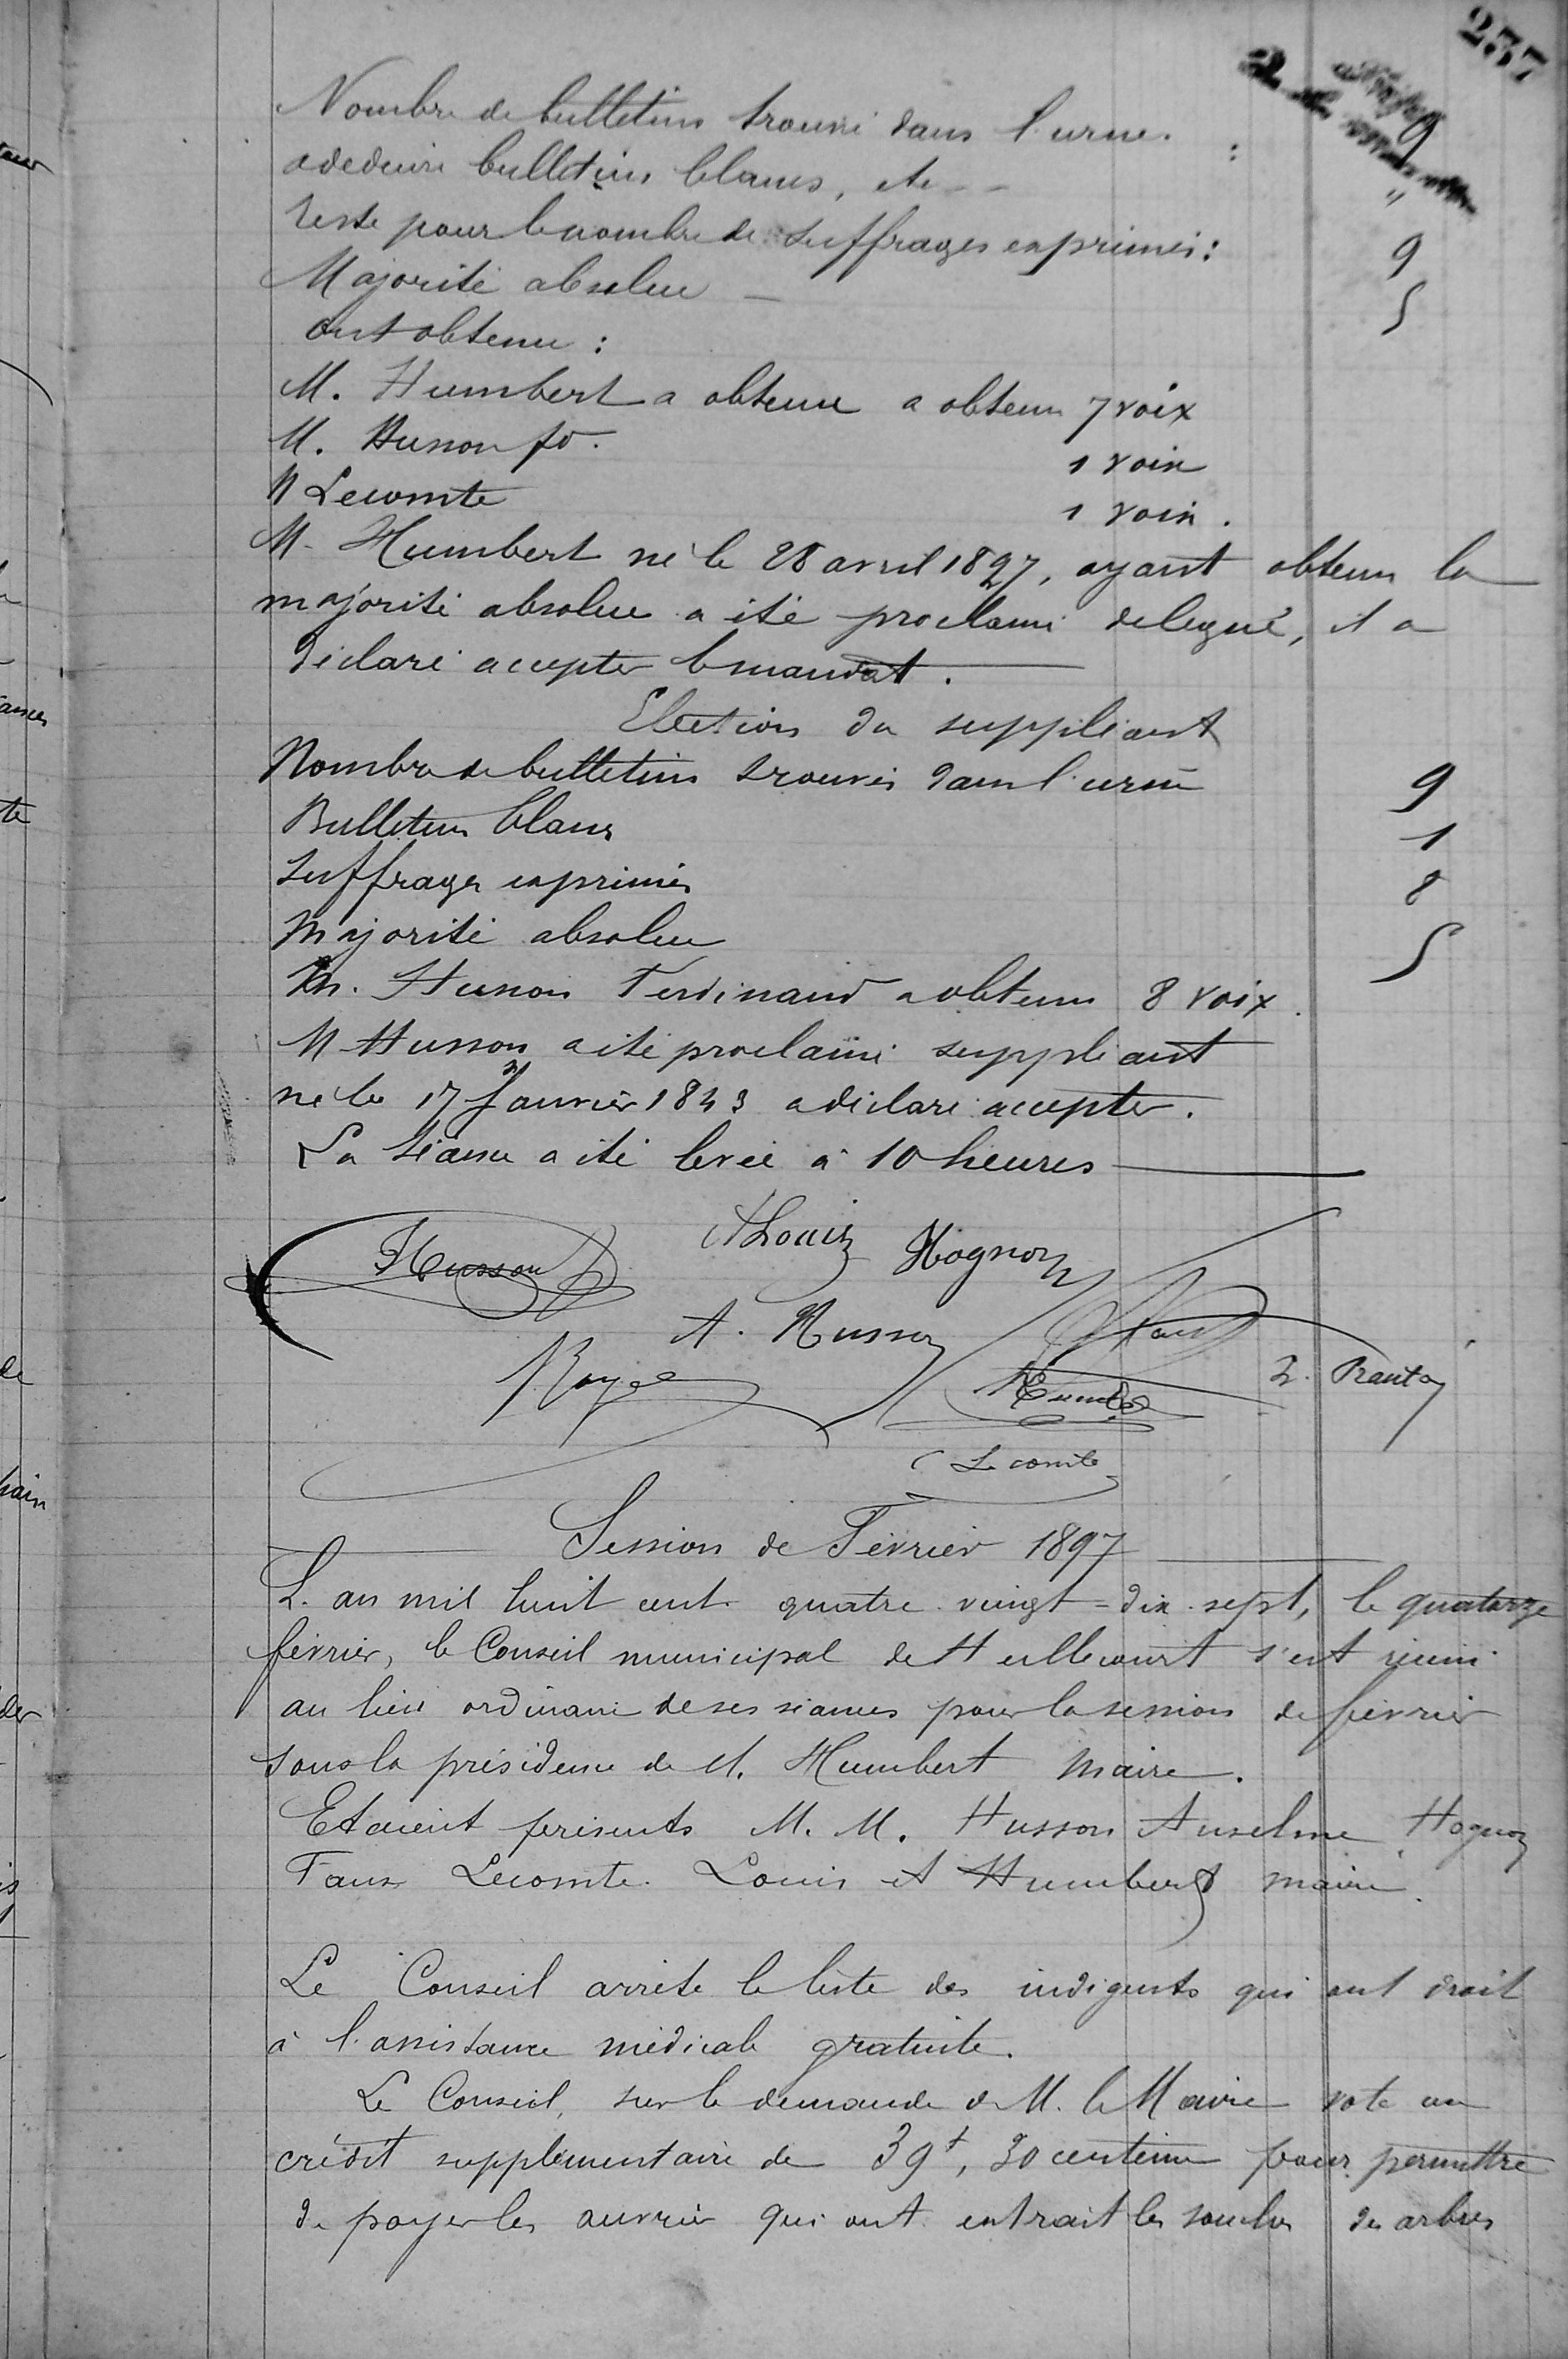 237
Nombre de bulletins trouvé dans l'urne. : 9
a deduire bulletins blancs, etc - - "
reste pour le nombre de suffrages exprimés : 9
Majorité absolue — 5
ont obtenu :
M. Humbert a obtenu a obtenu 7 voix
M. Husson fd. 1 voix
M Lecomte 1 voix.
M. Humbert né le 28 avril 1827, ayant obtenu la
majorité absolue a été proclamé delegué, il a
déclaré accepter le mandat.
Election du suppléant
Nombre de bulletins trouvés dans l'urne 9
Bulletins blancs 1
suffrages exprimés 8
Majorité absolue 5
M. Husson Ferdinand a obtenu 8 voix.
M Husson a été proclamé suppléant
né le 17 Janvier 1843 a déclaré accepter.
La séance a été levée à 10 heures
Husson ALouis Hognon
A. Husson
Royer Humbert
Lecomte
Session de Février 1897
L'an mil huit cent quatre-vingt-dix-sept, le quatorze
février, le Conseil municipal de Heillecourt s'est réuni
au lieu ordinaire de ses séances pour la session de février
sous la présidence de M. Humbert Maire.
Etaient présents M. M. Husson Anselme Hognon
Faux Lecomte. Louis et Humbert maire.
Le Conseil arrête la liste des indigents qui ont droit
à l'assistance médicale gratuite.
Le Conseil, sur la demande de M. le Maire vote un
crédit supplémentaire de 39f, 30 centime pour permettre
de payer les ouvrier qui ont extrait les souches des arbres